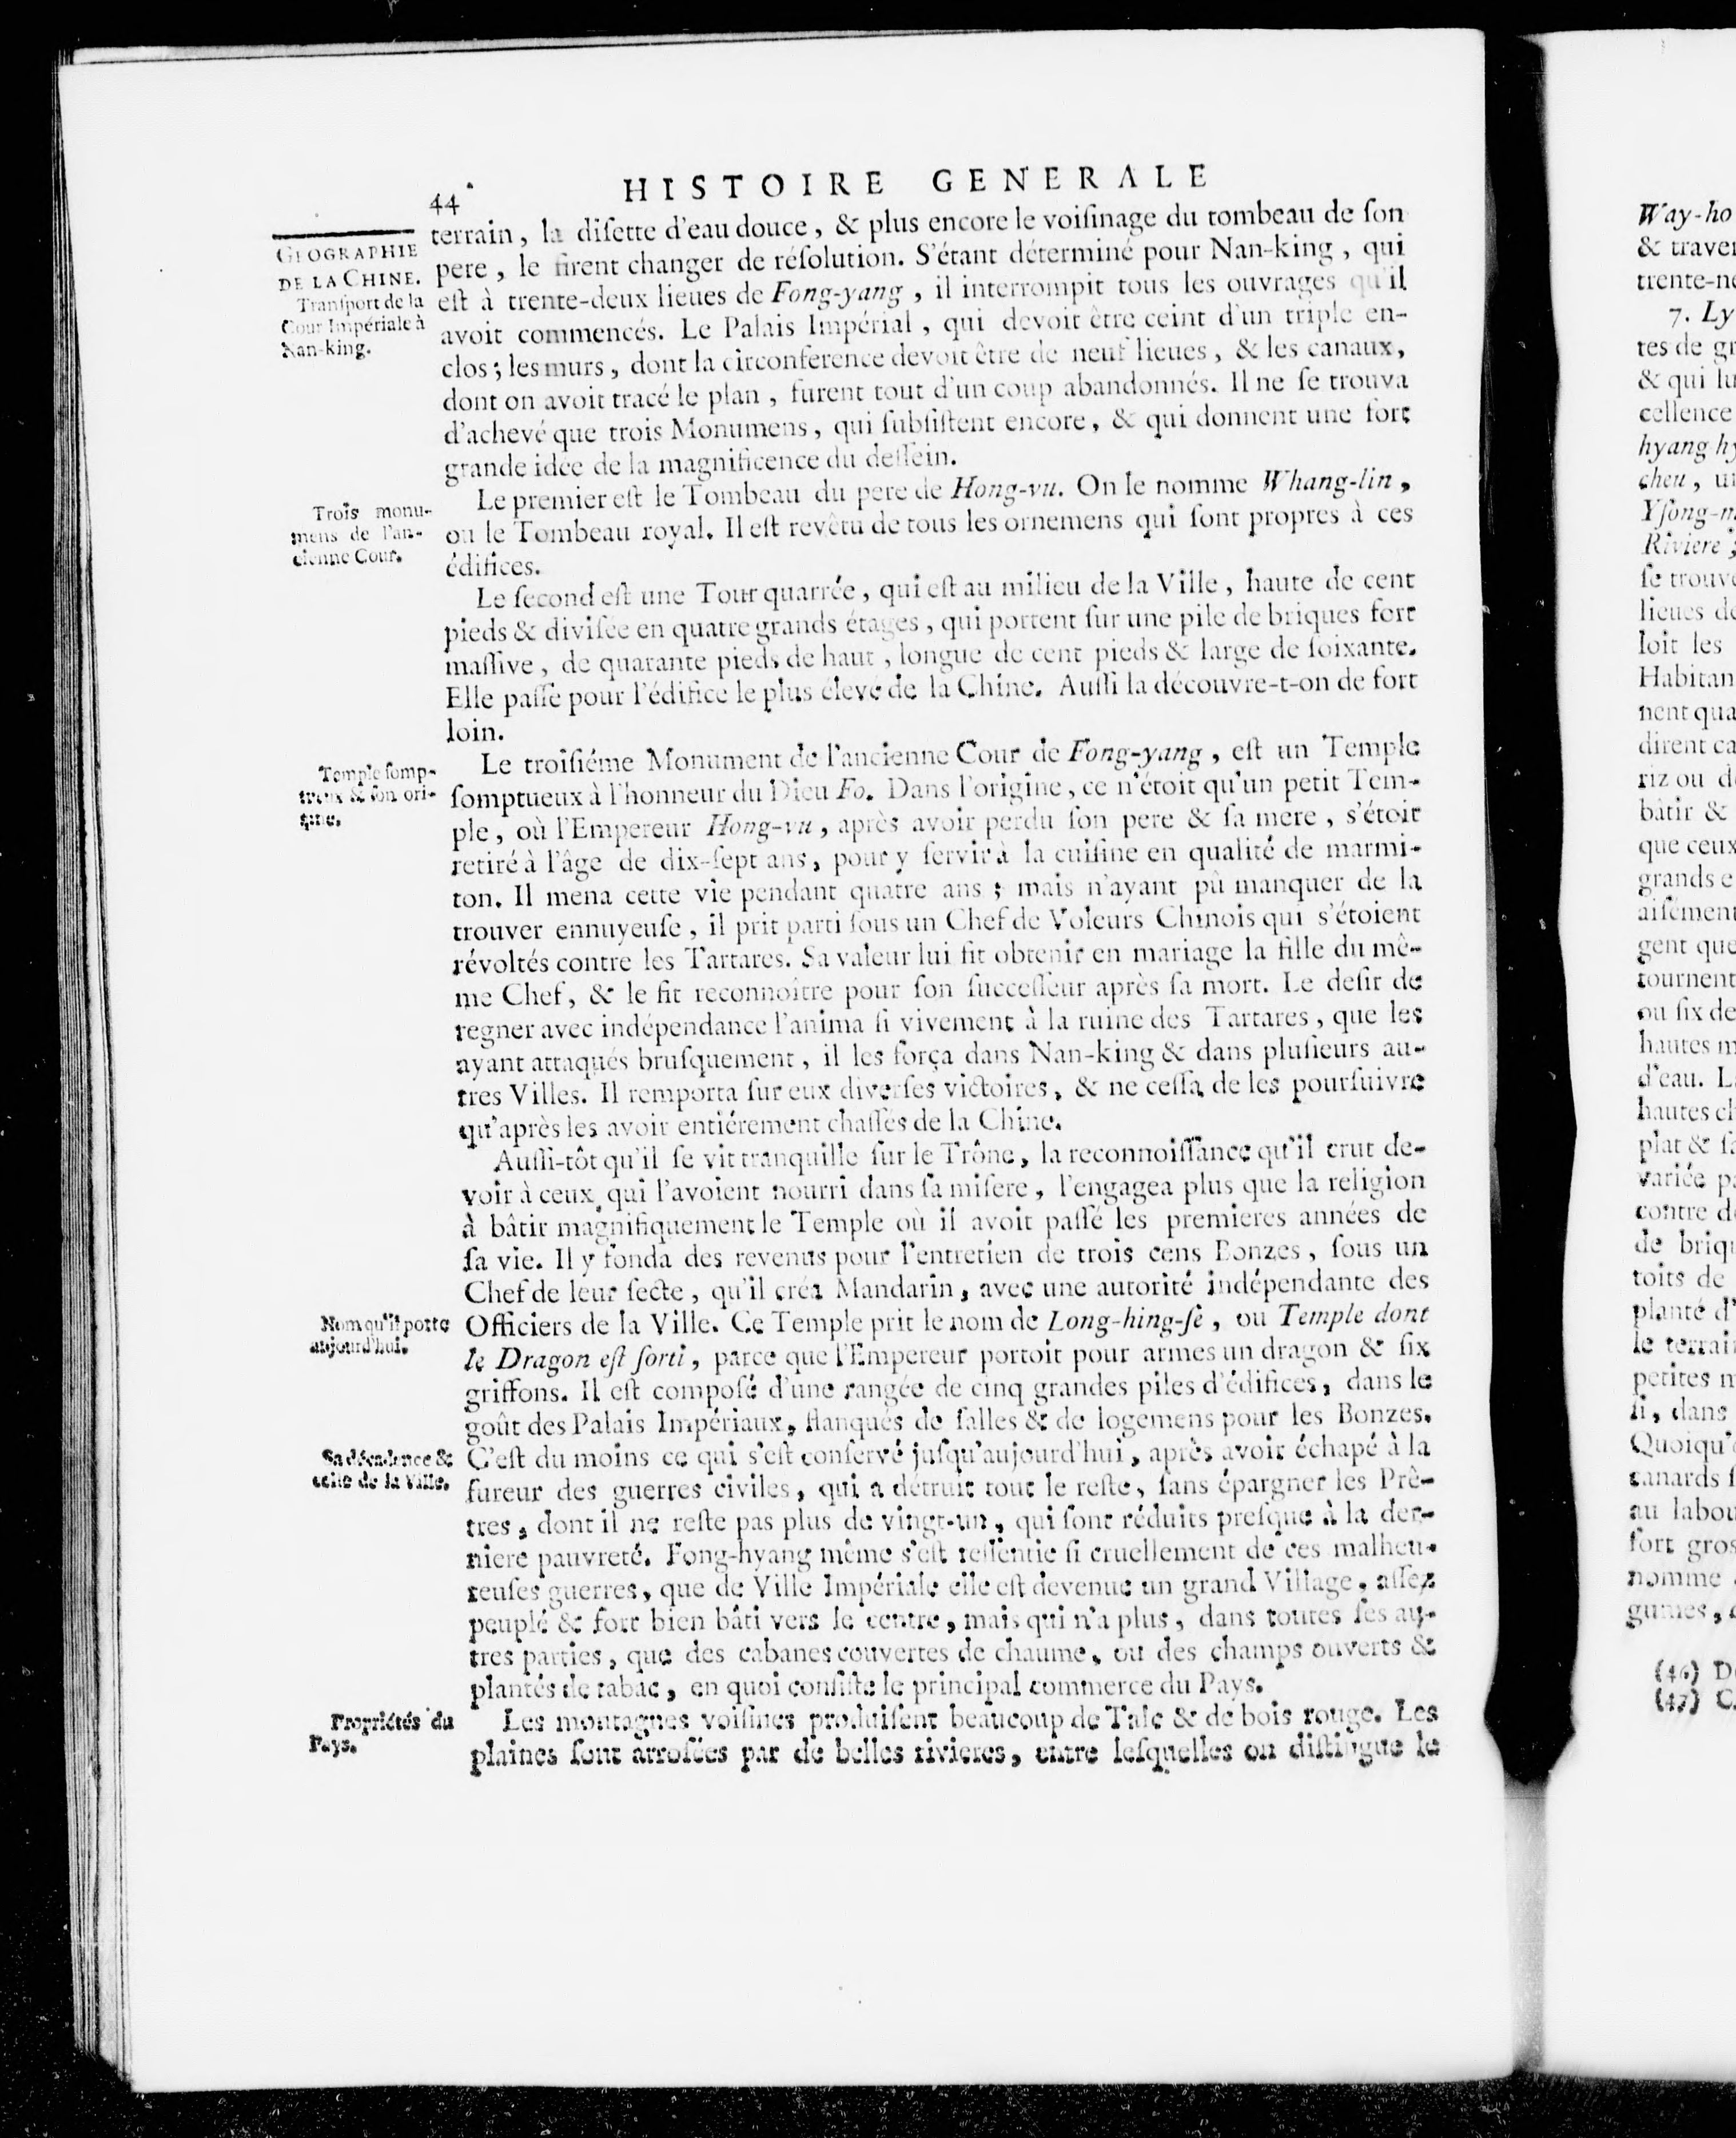 44 HISTOIRE GENERALE
GEOGRAPHIE
DE LA CHINE.
Tranſport de la
Cour Impériale à
Nan-king.
terrain, la diſette d'eau douce, & plus encore le voiſinage du tombeau de ſon
pere, le firent changer de réſolution. S'étant déterminé pour Nan-king, qui
eſt à trente-deux lieues de Fong-yang, il interrompit tous les ouvrages qu'il
avoit commencés. Le Palais Impérial, qui devoit être ceint d'un triple en-
clos; les murs, dont la circonference devoit être de neuf lieues, & les canaux,
dont on avoit tracé le plan, furent tout d'un coup abandonnés. Il ne ſe trouva
d'achevé que trois Monumens, qui ſubſiſtent encore, & qui donnent une fort
grande idée de la magnificence du deſſein.
Trois monu-
mens de l'an-
cienne Cour.
Le premier eſt le Tombeau du pere de Hong-vu. On le nomme Whang-lin,
ou le Tombeau royal. Il eſt revêtu de tous les ornemens qui ſont propres à ces
édifices.
Le ſecond eſt une Tour quarrée, qui eſt au milieu de la Ville, haute de cent
pieds & diviſée en quatre grands étages, qui portent ſur une pile de briques fort
maſſive, de quarante pieds de haut, longue de cent pieds & large de ſoixante.
Elle paſſe pour l'édifice le plus élevé de la Chine. Auſſi la découvre-t-on de fort
loin.
Temple ſomp-
tueux & ſon ori-
gine.
Le troiſiéme Monument de l'ancienne Cour de Fong-yang, eſt un Temple
ſomptueux à l'honneur du Dieu Fo. Dans l'origine, ce n'étoit qu'un petit Tem-
ple, où l'Empereur Hong-vu, après avoir perdu ſon pere & ſa mere, s'étoit
retiré à l'âge de dix-ſept ans, pour y ſervir à la cuiſine en qualité de marmi-
ton. Il mena cette vie pendant quatre ans; mais n'ayant pû manquer de la
trouver ennuyeuſe, il prit parti ſous un Chef de Voleurs Chinois qui s'étoient
révoltés contre les Tartares. Sa valeur lui fit obtenir en mariage la fille du mê-
me Chef, & le fit reconnoître pour ſon ſucceſſeur après ſa mort. Le deſir de
regner avec indépendance l'anima ſi vivement à la ruine des Tartares, que les
ayant attaqués bruſquement, il les força dans Nan-king & dans pluſieurs au-
tres Villes. Il remporta ſur eux diverſes victoires, & ne ceſſa de les pourſuivre
qu'après les avoir entiérement chaſſés de la Chine.
Auſſi-tôt qu'il ſe vit tranquille ſur le Trône, la reconnoiſſance qu'il crut de-
voir à ceux qui l'avoient nourri dans ſa miſere, l'engagea plus que la religion
à bâtir magnifiquement le Temple où il avoit paſſé les premieres années de
ſa vie. Il y fonda des revenus pour l'entretien de trois cens Bonzes, ſous un
Chef de leur ſecte, qu'il créa Mandarin, avec une autorité indépendante des
Nom qu'il porte
aujourd'hui.
Officiers de la Ville. Ce Temple prit le nom de Long-hing-ſe, ou Temple dont
le Dragon eſt ſorti, parce que l'Empereur portoit pour armes un dragon & ſix
griffons. Il eſt compoſé d'une rangée de cinq grandes piles d'édifices, dans le
goût des Palais Impériaux, flanqués de ſalles & de logemens pour les Bonzes.
Sa décadence &
celle de la Ville.
C'eſt du moins ce qui s'eſt conſervé juſqu'aujourd'hui, après avoir échapé à la
fureur des guerres civiles, qui a détruit tout le reſte, ſans épargner les Prê-
tres, dont il ne reſte pas plus de vingt-un, qui ſont réduits preſque à la der-
niere pauvreté. Fong-hyang même s'eſt reſſentie ſi cruellement de ces malheu-
reuſes guerres, que de Ville Impériale elle eſt devenue un grand Village, aſſez
peuplé & fort bien bâti vers le centre, mais qui n'a plus, dans toutes ſes au-
tres parties, que des cabanes couvertes de chaume, ou des champs ouverts &
plantés de tabac, en quoi conſiſte le principal commerce du Pays.
Propriétés du
Pays.
Les montagnes voiſines produiſent beaucoup de Talc & de bois rouge. Les
plaines ſont arroſées par de belles rivieres, entre leſquelles on diſtingue le
Way-ho
& traver
trente-ne
7. Ly
tes de gr
& qui lu
cellence
hyang hy
cheu, u
Yſong-m
Riviere;
ſe trouve
lieues de
loit les
Habitan
nent qua
dirent ca
riz ou d
bâtir &
que ceux
grands e
aiſément
gent que
tournent
ou ſix de
hautes m
d'eau. L
hautes cl
plat & ſa
variée pa
contre d
de briqu
toits de
planté d'
le terrai
petites m
ſi, dans
Quoiqu'
canards ſ
au labou
fort gros
nomme
gumes,
(46) D
(47) C